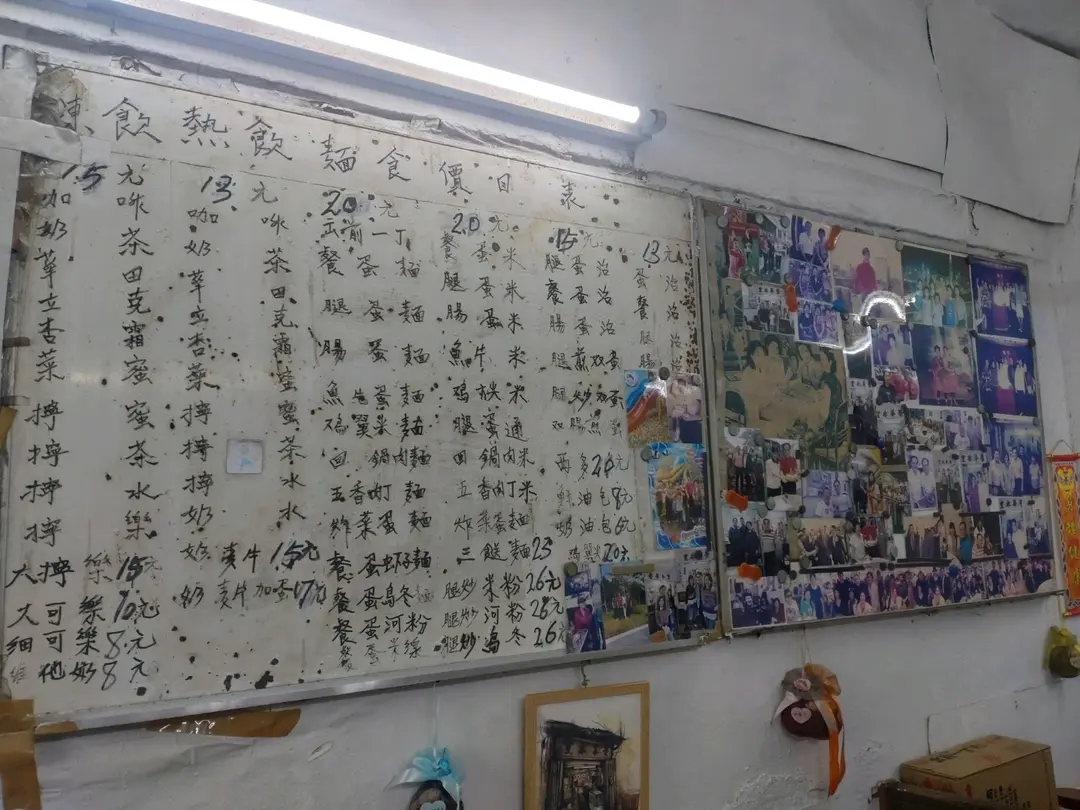 凍飲 熱飲 麵食價目表
15元
咖 啡
奶 茶
田
立 克
杏 霜
菜 蜜
擰 蜜
擰 茶
擰 水
擰 樂
大擰樂15元
大可樂10元
細可樂8元
維他奶8元
13元
咖 啡
奶 茶
田
立 克
杏 霜
菜 蜜
擰 蜜
擰 茶
擰 水
奶 水
奶 15元
奶 加蛋17元
20元
出前一丁
餐蛋麵
腿蛋麵
腸蛋麵
魚 蛋麵
鸡翼 麵
回鍋肉麵
五香肉丁麵
炸菜蛋麵
餐蛋虾子麵
餐蛋烏冬
餐蛋河粉
餐蛋米線
20元
餐蛋米
腿蛋米
腸蛋米
魚片米
鸡 米
腿蛋通
回鍋肉米
五香肉丁米
炸菜蛋麵
三餸麵23
腿炒米粉26元
腿炒河粉28元
腿炒烏冬26元
15元
腿蛋治
餐蛋治
腸蛋治
腿煎双蛋
腿炒双蛋
双腸煎蛋
西多20元
鲜油包8元
奶油包6元
鸡翼 20元
13元
蛋治
餐治
腿治
腸治